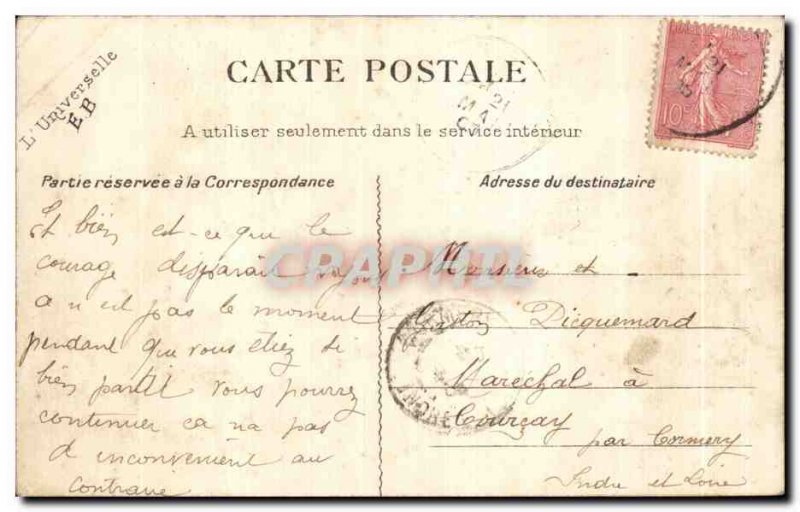 L'Universelle
E B
CARTE POSTALE
A utiliser seulement dans le service intérieur
Partie réservée à la Correspondance
Et bien est-ce que le
courage disparait
a n est pas le moment
pendant que vous etiez si
bien partit vous pourrez
continuer ca na pas
d inconvenient au
contraire
Adresse du destinataire
Monsieur et
Gaston Dicquemard
Maréchal à
Courçay
par Cormery
Indre et Loire
10
21
MAI
21
MAI
CPAPHIL